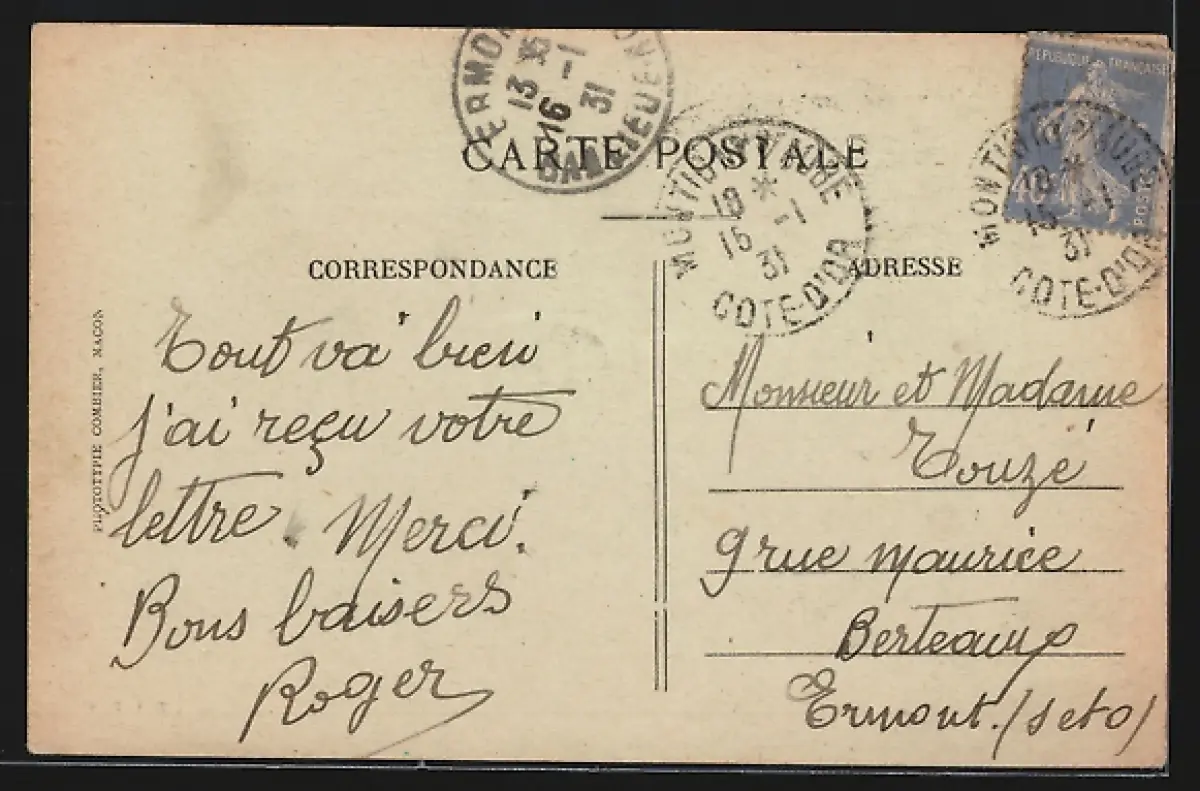 RÉPUBLIQUE FRANÇAISE
40
POSTES
13 *
16 -1
31
CARTE POSTALE
MONTIGNY-S-AUBE
18 *
15 -1
31
COTE-D'OR
18 *
15 -1
31
COTE-D'OR
CORRESPONDANCE
Tout va bien
J'ai reçu votre
lettre. Merci.
Bons baisers
Roger
ADRESSE
Monsieur et Madame
Touzé
9 rue Maurice
Berteaux
Ermont. (S et O)
PHOTOTYPIE COMBIER, MACON